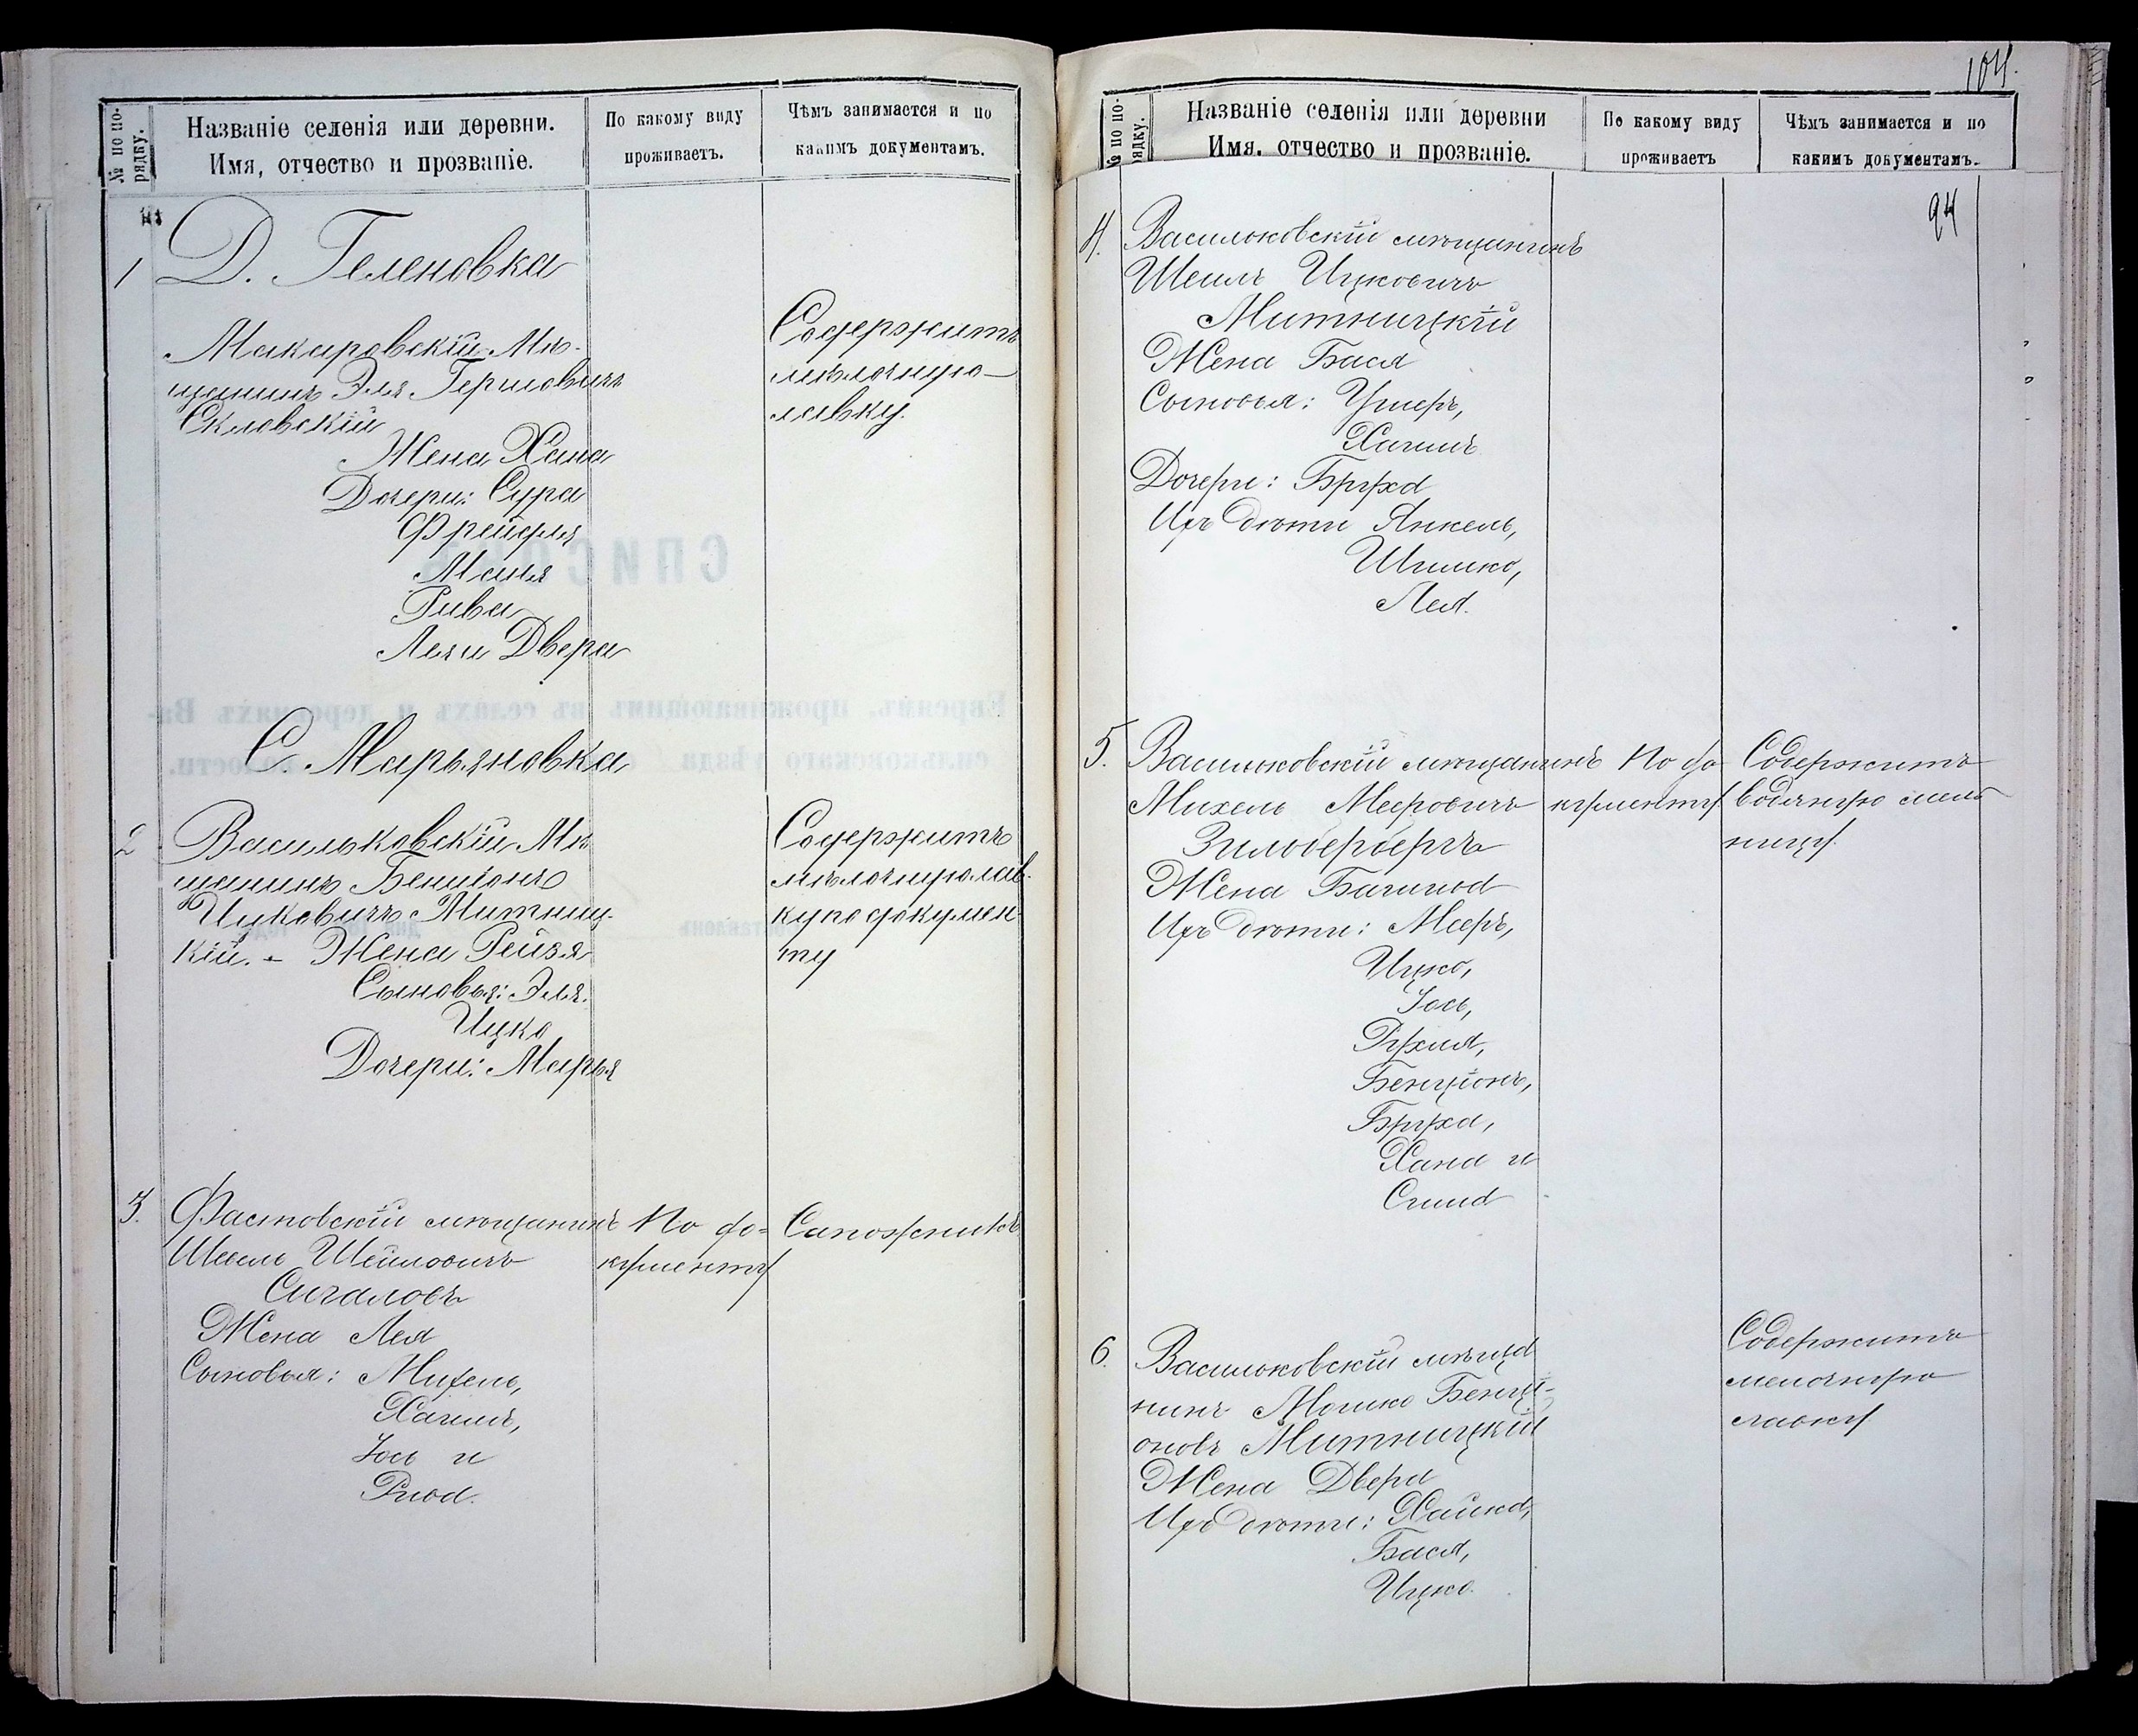 № по порядку.
Названіе селенія или деревни.
Имя, отчество и прозваніе.
По какому виду
проживаетъ.
Чѣмъ занимается и по
какимъ документамъ.
1
Д. Геленовка
Макаровскій Мѣ-
щанинъ Эля Гершовичъ
Скловскій
Жена Хана
Дочери: Сура
Фрейдля
Маня
Рива
Двера
Содержитъ
мѣлочную
лавку.
С. Марьяновка
2
Васильковскій Мѣ
щанинъ Бенціонъ
Ицковичъ Митниц-
кій. - Жена Рейзя
Сыновья: Эля.
Ицко
Дочери: Марья
Содержитъ
мѣлочную лав-
ку по докумен-
ту
3.
Фастовскій мѣщанинъ
Шейловичъ
Сигаловъ
Жена Лея
Сыновья: Михель,
Хаимъ,
Іось и
По до=
кументу
Сапожникъ
104.
№ по порядку.
Названіе селенія или деревни
Имя. отчество и прозваніе.
По какому виду
проживаетъ
Чѣмъ занимается и по
какимъ документамъ.
94
4.
Васильковскій мѣщанинъ
Ицковичъ
Митницкій
Жена Бася
Сыновья: Ушеръ,
Хаимъ
Дочери: Бруха
Ихъ дѣти Янкель,
Шимко,
Лея.
5.
Васильковскій мѣщанинъ
Михель Мееровичъ
Зильбербергъ
Жена
Ихъ дѣти: Мееръ,
Ицко,
Іось,
Рухля,
Бенціонъ,
Бруха,
Хана и
Сима
По до
кументу
Содержитъ
водяную мель
ницу.
6.
Васильковскій мѣща
нинъ Мошко Бенці-
оновъ Митницкій
Жена Двера
Ихъ дѣти: Хайка,
Бася,
Ицко.
Содержитъ
мелочную
лавку